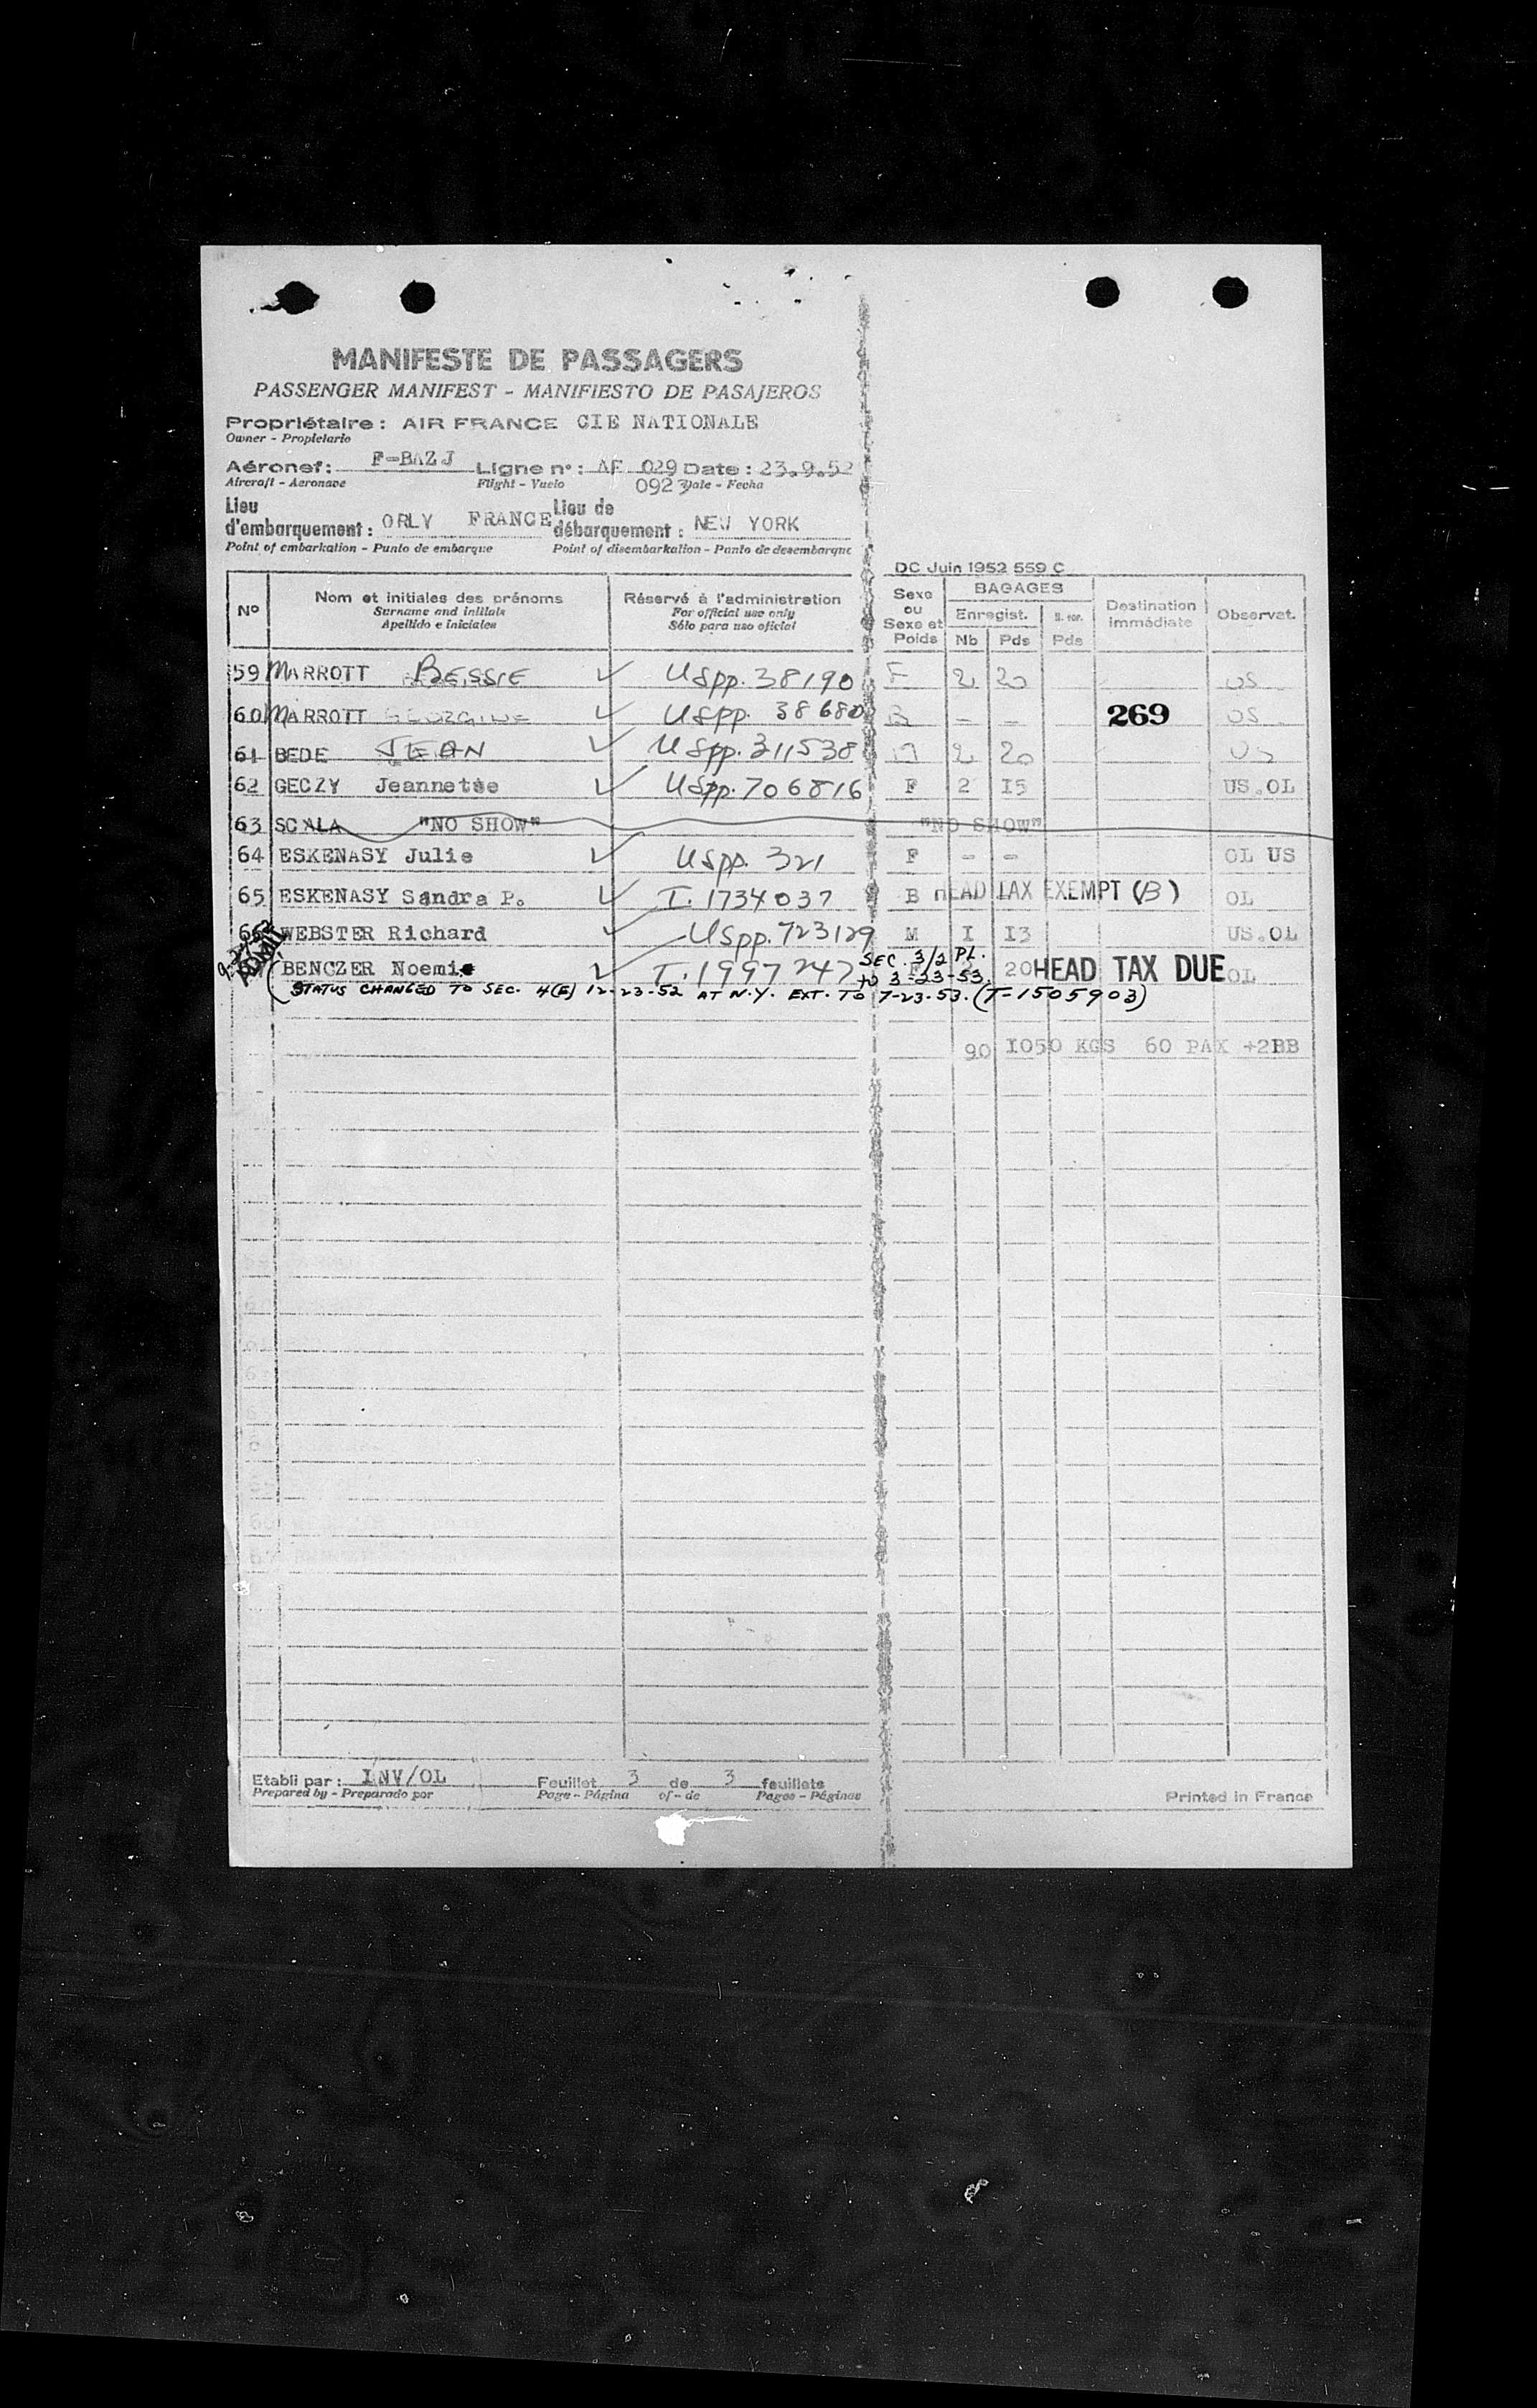 MANIFESTE DE PASSAGERS
PASSENGER MANIFEST - MANIFIESTO DE PASAJEROS
Propriétaire : AIR FRANCE CIE NATIONALE
Owner - Propietario
Aéronef : F-BAZJ Ligne n° : AF 029 Date : 23.9.52
Aircraft - Aeronave Flight - Vuelo 0923 Date - Fecha
Lieu d'embarquement : ORLY FRANCE Lieu de débarquement : NEW YORK
Point of embarkation - Punto de embarque Point of disembarkation - Punto de desembarque
DC Juin 1952 559 C
N° Nom et initiales des prénoms Réservé à l'administration Sexe ou Sexe et Poids BAGAGES Destination immédiate Observat.
Surname and initials For official use only Enregist.
Apellido e iniciales Sólo para uso oficial Nb Pds Pds
59 MARROTT BESSIE ✓ USpp. 38190 F 2 20 US
60 MARROTT GEORGINE ✓ USpp. 38680 B - - 269 US
61 BEDE JEAN ✓ USpp. 311538 2 20 US
62 GECZY Jeannette ✓ USpp. 706816 F 2 I5 US.OL
63 SCALA "NO SHOW" "NO SHOW"
64 ESKENASY Julie ✓ USpp. 321 F - - OL US
65 ESKENASY Sandra P. ✓ T. 1734037 B HEAD TAX EXEMPT (B) OL
66 WEBSTER Richard ✓ USpp. 723129 M I I3 US.OL
ADMIT
BENCZER Noemie ✓ T. 1997247 SEC. 3/2 PL. to 3-23-53. 20 HEAD TAX DUE OL
(STATUS CHANGED TO SEC. 4(E) 12-23-52 AT N.Y. EXT. TO 7-23-53. (T-1505903)
90 I050 KGS 60 PAX +2BB
Etabli par : INV/OL Feuillet 3 de 3 feuillets
Prepared by - Preparado por Page - Página of - de Pages - Páginas
Printed in France